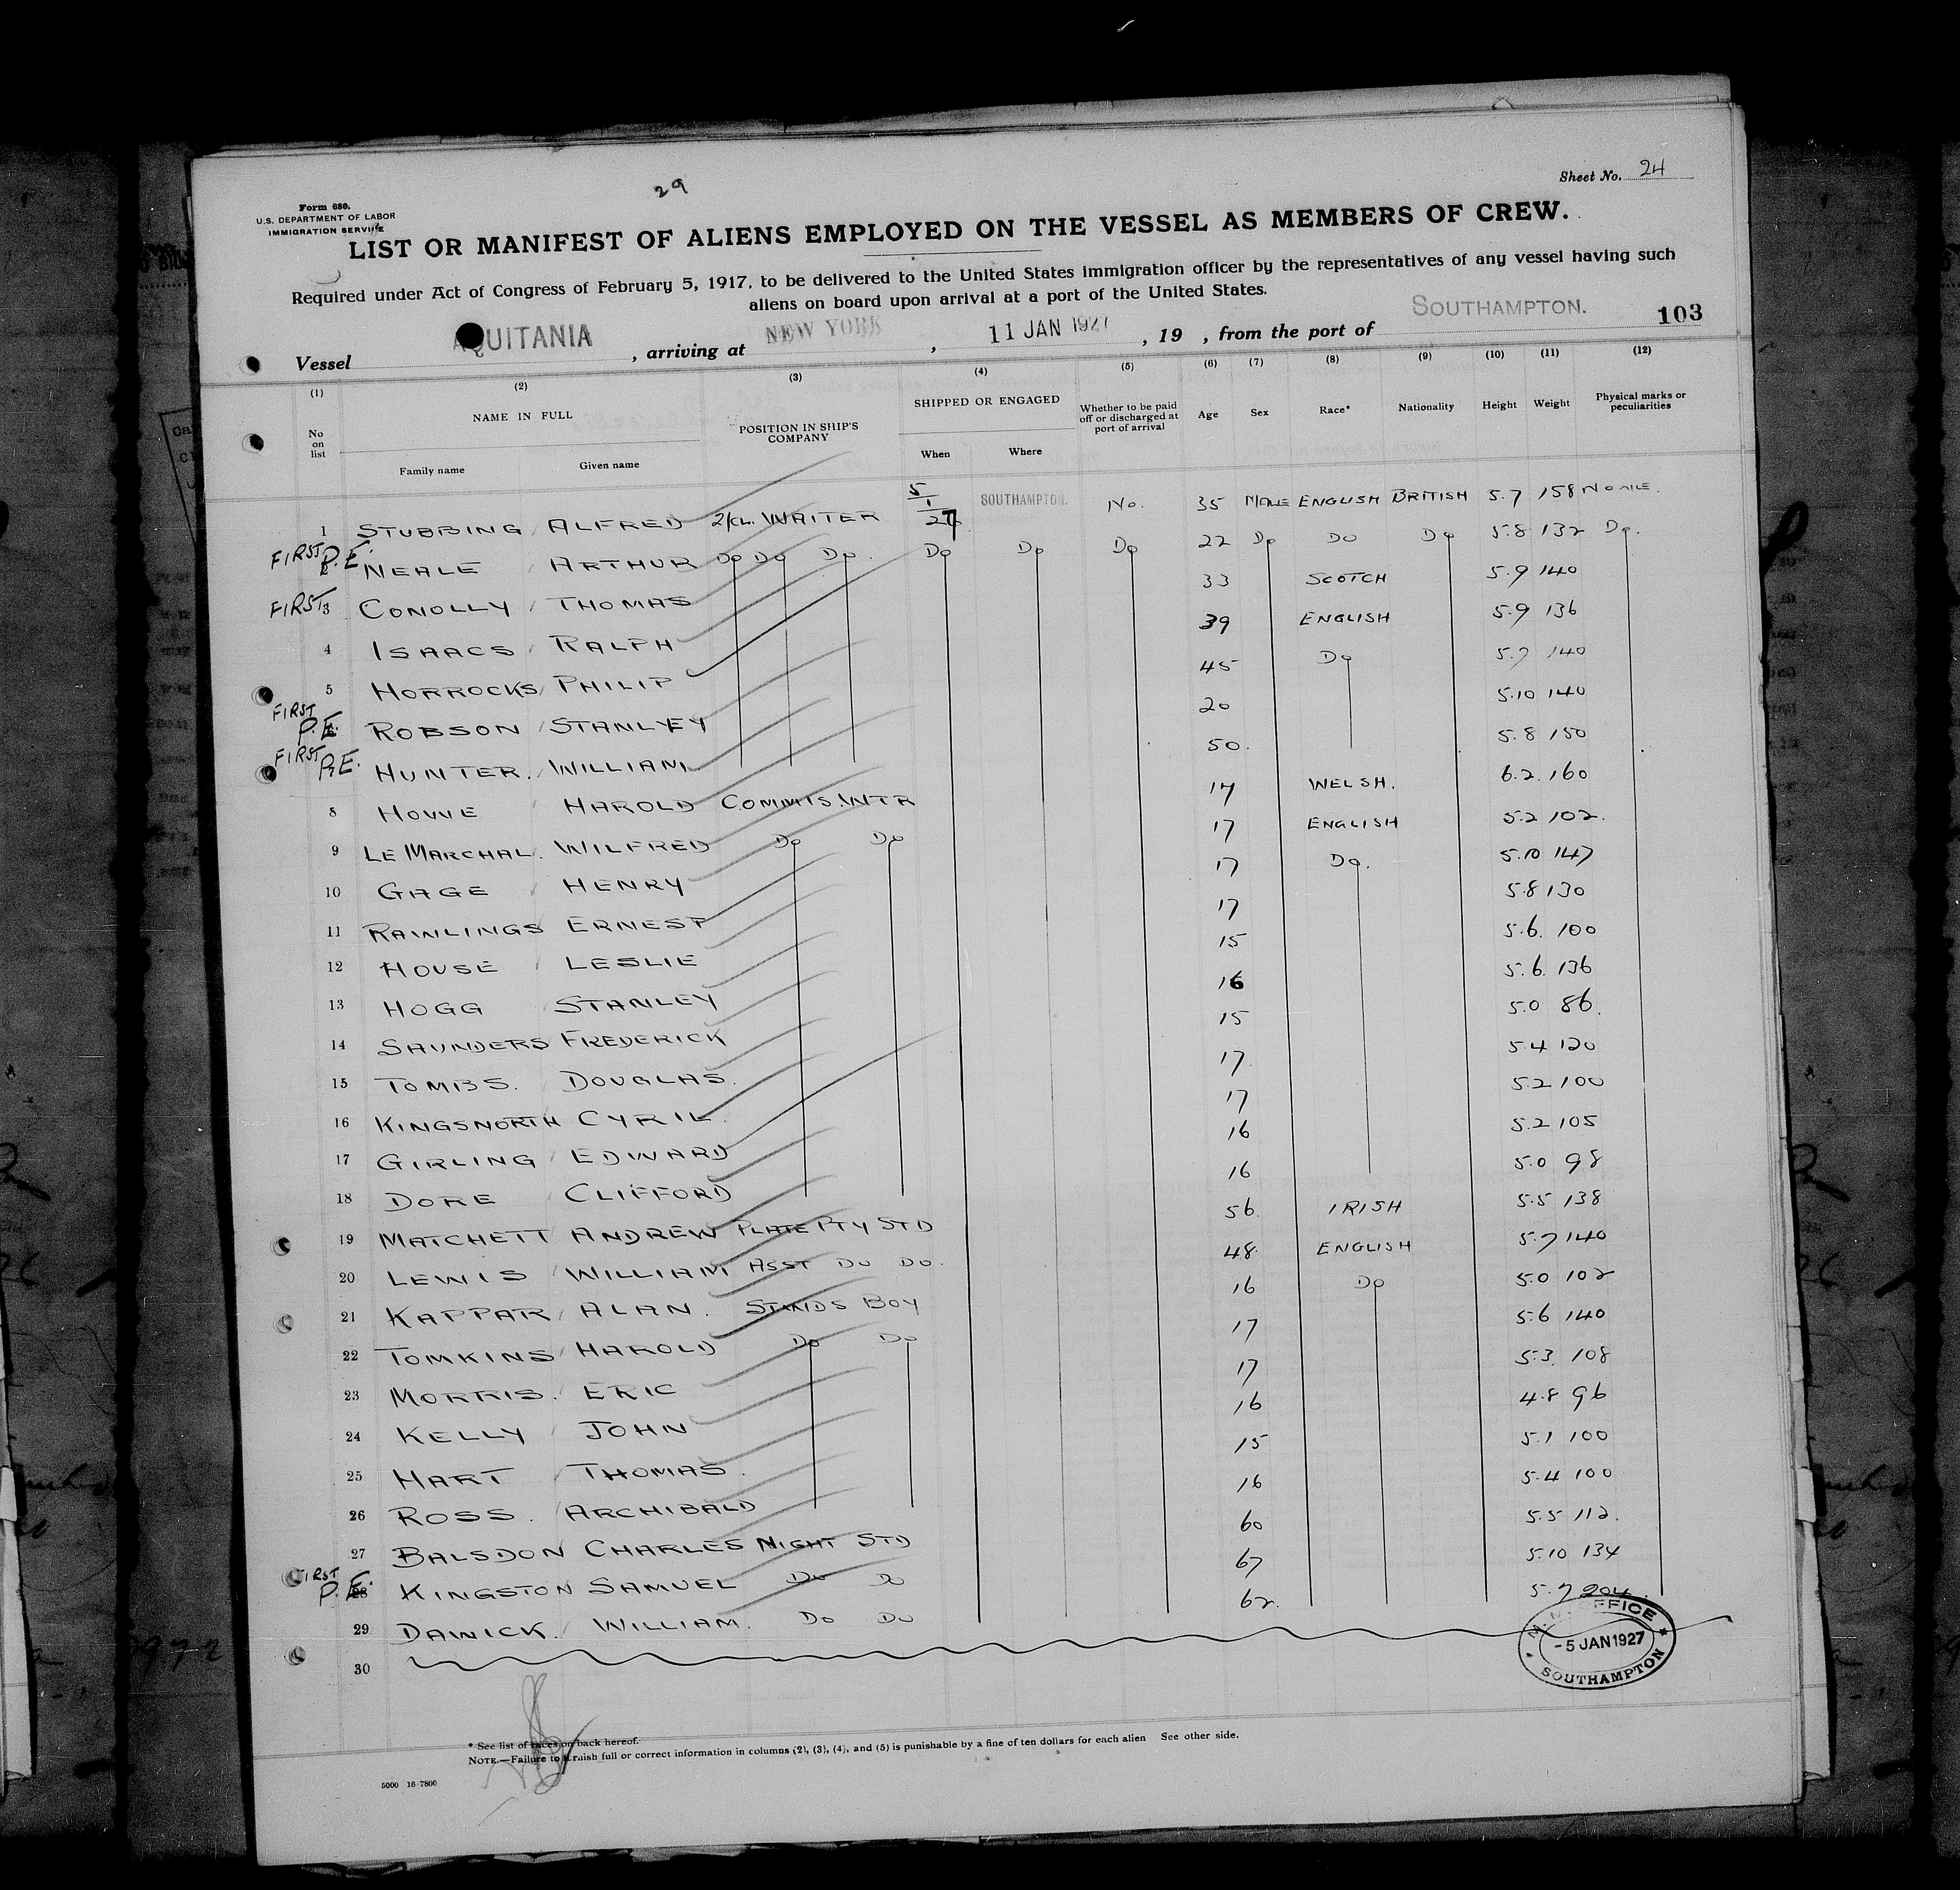 29
Sheet No. 24
Form 680.
U.S. DEPARTMENT OF LABOR
IMMIGRATION SERVICE
LIST OR MANIFEST OF ALIENS EMPLOYED ON THE VESSEL AS MEMBERS OF CREW.
Required under Act of Congress of February 5, 1917, to be delivered to the United States immigration officer by the representatives of any vessel having such
aliens on board upon arrival at a port of the United States.
Vessel AQUITANIA, arriving at NEW YORK, 11 JAN 1927, 19 , from the port of SOUTHAMPTON. 103
(1) (2) (3) (4) (5) (6) (7) (8) (9) (10) (11) (12)
No on list NAME IN FULL Family name Given name POSITION IN SHIP'S COMPANY SHIPPED OR ENGAGED When Where Whether to be paid off or discharged at port of arrival Age Sex Race* Nationality Height Weight Physical marks or peculiarities
1 STUBBING ALFRED 2/CL. WAITER 5/1/27 SOUTHAMPTON. No. 35 MALE ENGLISH BRITISH 5.7 158 NONE.
FIRST P.E. NEALE ARTHUR Do Do Do. Do Do Do 22 Do Do Do 5.8 132 Do.
FIRST 3 CONOLLY THOMAS 33 SCOTCH 5.9 140
4 ISAACS RALPH 39 ENGLISH 5.9 136
5 HORROCKS PHILIP 45 Do 5.7 140
FIRST P.E. ROBSON STANLEY 20 5.10 140
FIRST P.E. HUNTER. WILLIAM 50. 5.8 150
8 HOWE HAROLD COMMIS. WTR 17 WELSH. 6.2. 160
9 LE MARCHAL. WILFRED Do Do 17 ENGLISH 5.2 102.
10 GAGE HENRY 17 Do. 5.10 147
11 RAWLINGS ERNEST 17 5.8 130
12 HOUSE LESLIE 15 5.6. 100
13 HOGG STANLEY 16 5.6. 136
14 SAUNDERS FREDERICK 15 5.0 86.
15 TOMBS. DOUGLAS. 17. 5.4 120
16 KINGSNORTH CYRIL. 17 5.2 100
17 GIRLING EDWARD 16 5.2 105
18 DORE CLIFFORD 16 5.0 98
19 MATCHETT ANDREW PLATE PTY STD 56. IRISH 5.5 138
20 LEWIS WILLIAM ASST Do Do. 48. ENGLISH 5.7 140
21 KAPPAR ALAN. STWDS BOY 16 Do 5.0 102
22 TOMKINS HAROLD Do Do 17 5.6 140
23 MORRIS. ERIC 17 5.3. 108
24 KELLY JOHN 16 4.8 96
25 HART THOMAS. 15 5.1 100
26 ROSS. ARCHIBALD 16 5.4 100
27 BALSDON CHARLES NIGHT STD 60 5.5 112.
FIRST P.E. 28 KINGSTON SAMUEL Do Do 67 5.10 134
29 DAWICK. WILLIAM. Do Do 62. 5.7 204
30
OFFICE
-5 JAN 1927
SOUTHAMPTON
* See list of races on back hereof.
NOTE.—Failure to furnish full or correct information in columns (2), (3), (4), and (5) is punishable by a fine of ten dollars for each alien See other side.
5000 16-7800